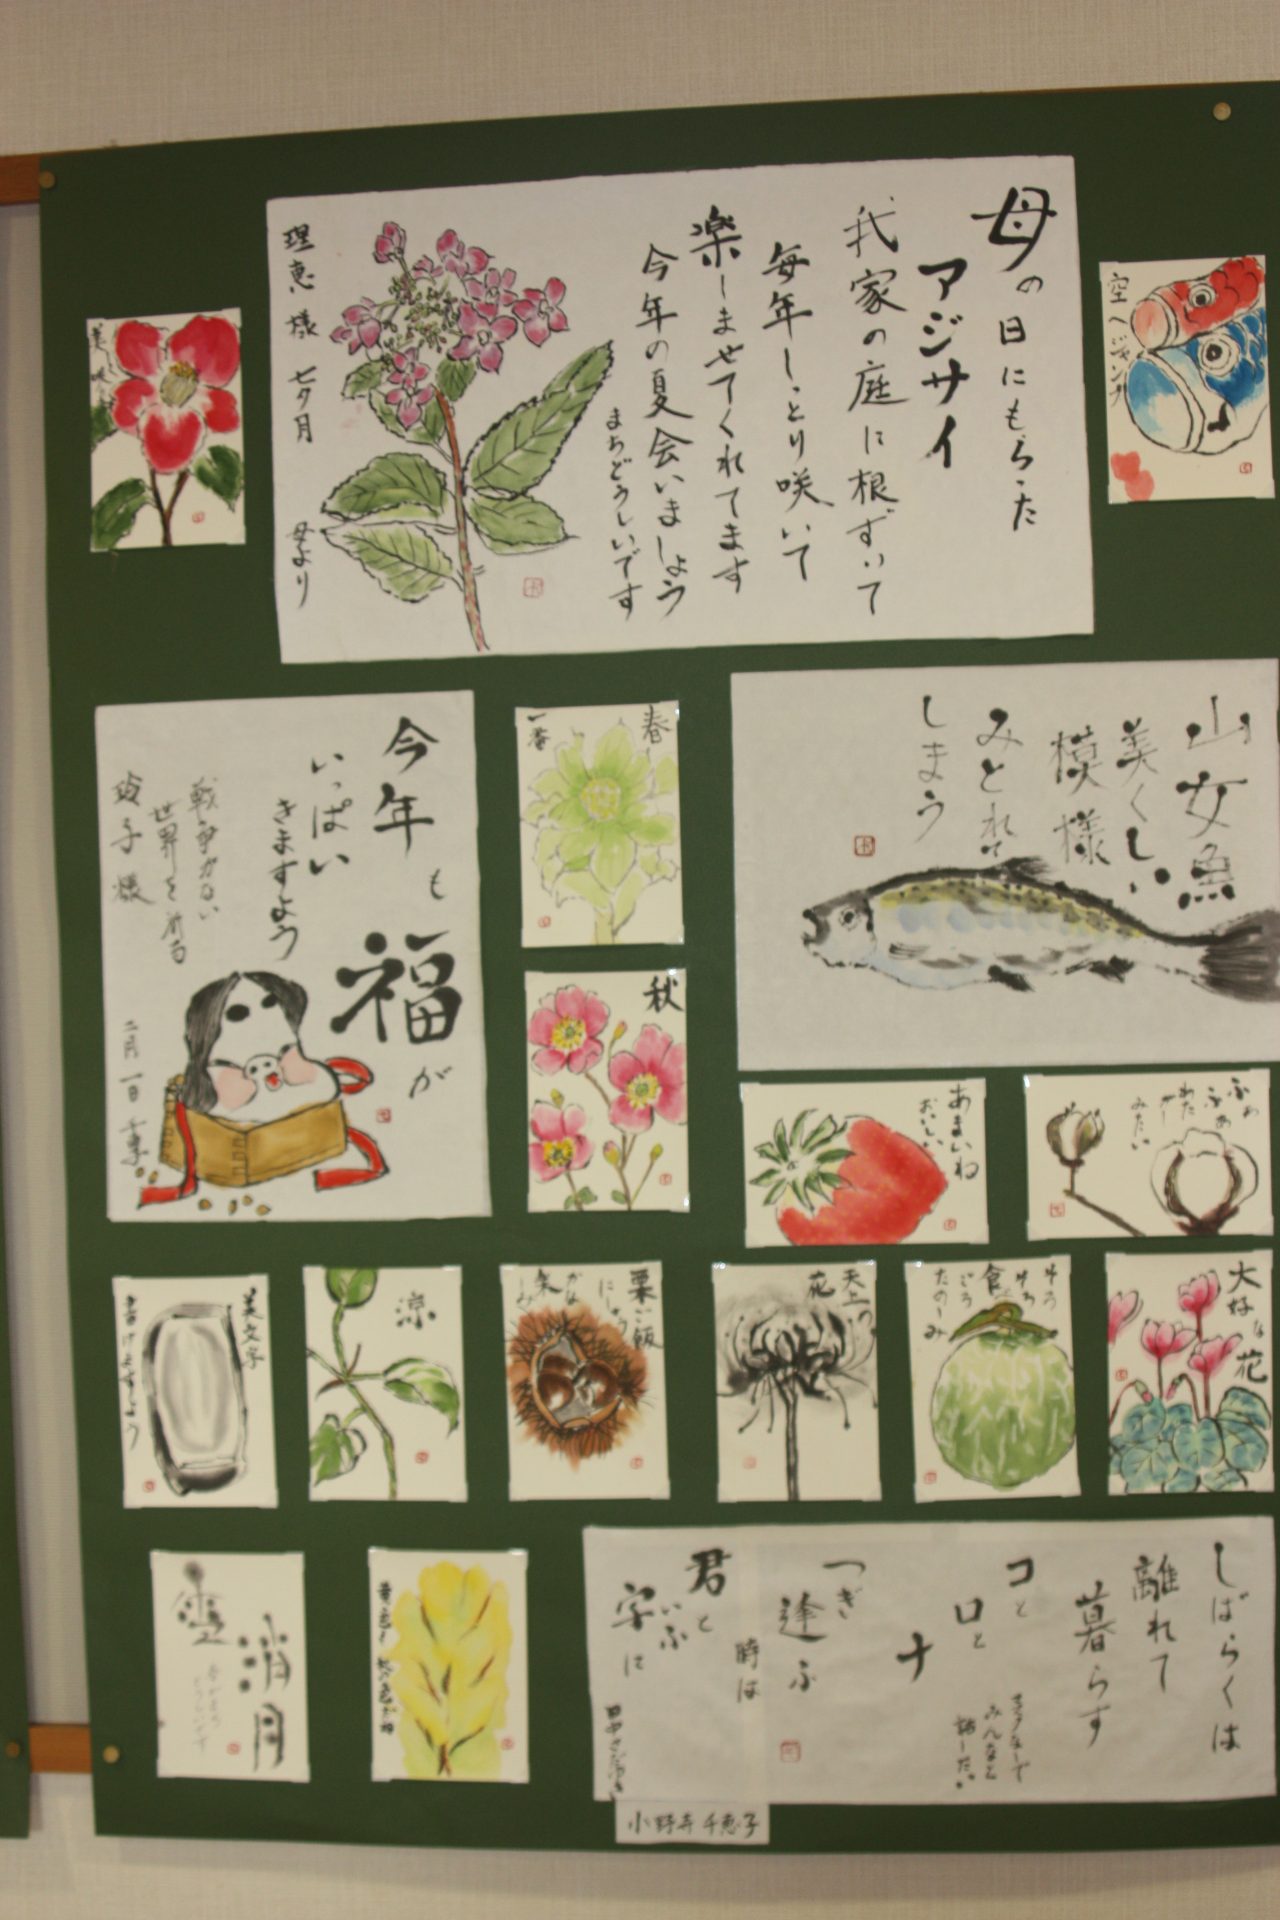 母の日にもらった
アジサイ
我家の庭に根ずいて
毎年しっとり咲いて
楽しませてくれてます
今年の夏会いましょう
まちどうしいです
理恵様 七夕月
母より
空へジャンプ
今年も福が
いっぱい
きますよう
戦争がない
世界を
子様
二月一日
春
一番
秋
山女魚
美くしい
模様
みとれて
しまう
あまいね
おいしい
ふわ
ふわ
わた
がし
みたい
美文字
書けますよう
涼
栗ご飯
にしよう
かな
楽しみ
天上の
花
ゆら
ゆら
食べごろ
たのしみ
大好な
花
しばらくは
離れて
暮らす
コと
ロと
ナ
つぎ
逢ふ
時は
君と
いふ
字に
マスクなしで
みんなと
話したい
小野寺千恵子